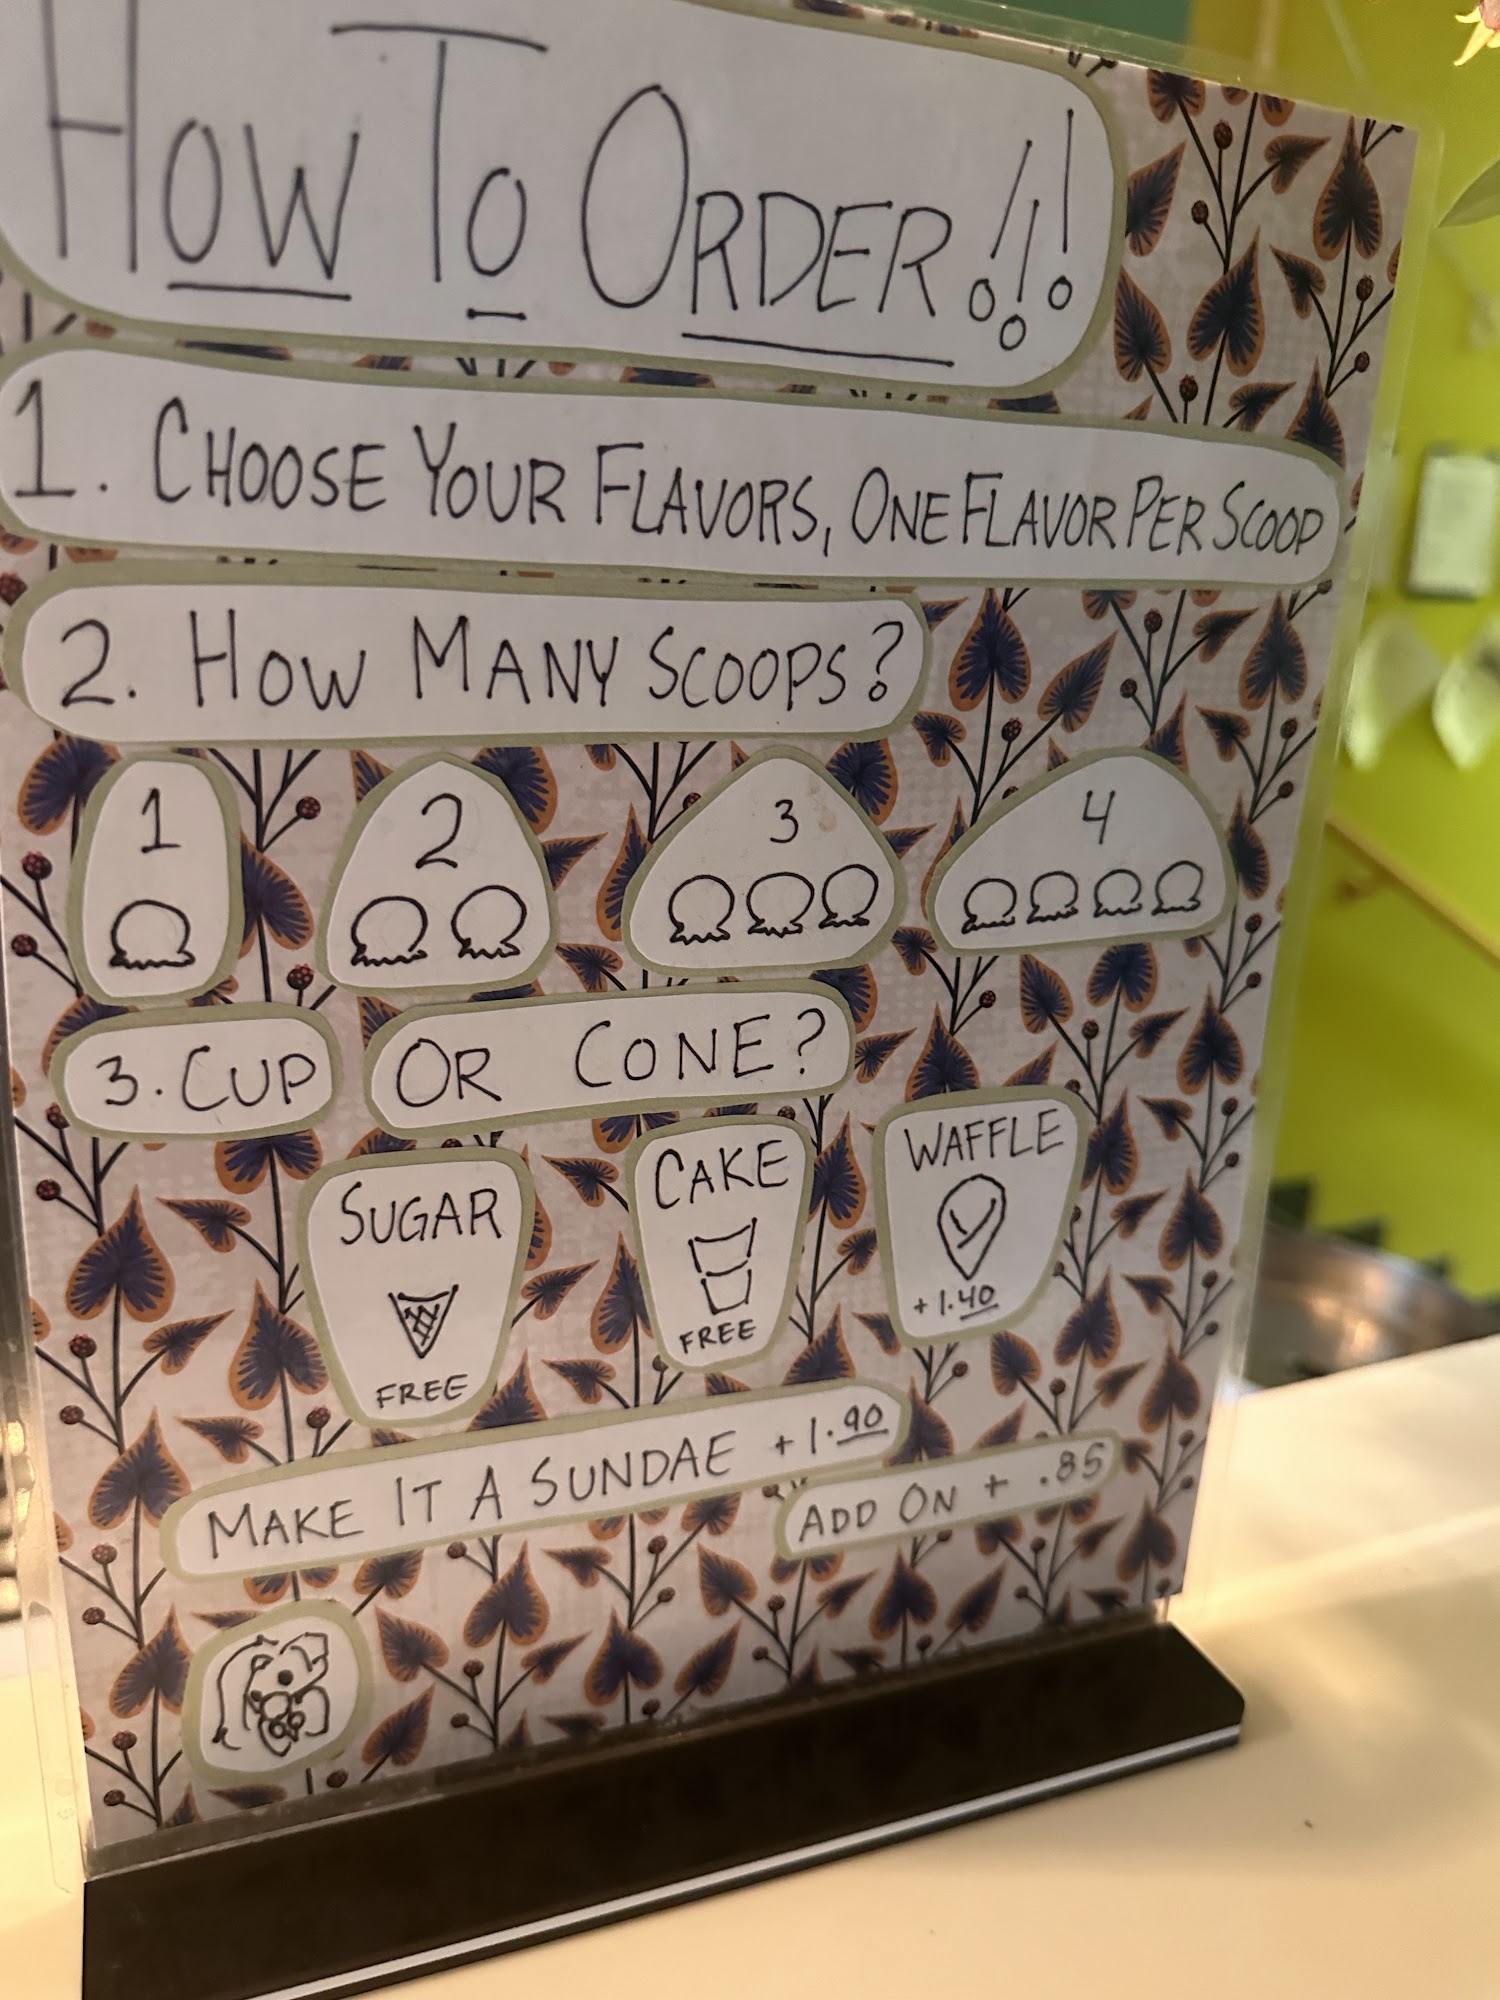 HOW TO ORDER!!!
1. CHOOSE YOUR FLAVORS, ONE FLAVOR PER SCOOP
2. HOW MANY SCOOPS?
1 2 3 4
3. CUP OR CONE?
SUGAR CAKE WAFFLE
FREE FREE +1.40
MAKE IT A SUNDAE +1.90
ADD ON + .85